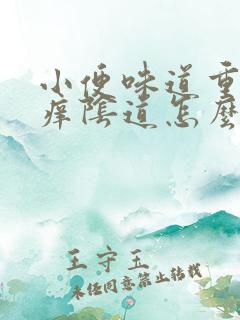 小便味道重
痒陰道怎麽
王守玉
未经同意禁止转载